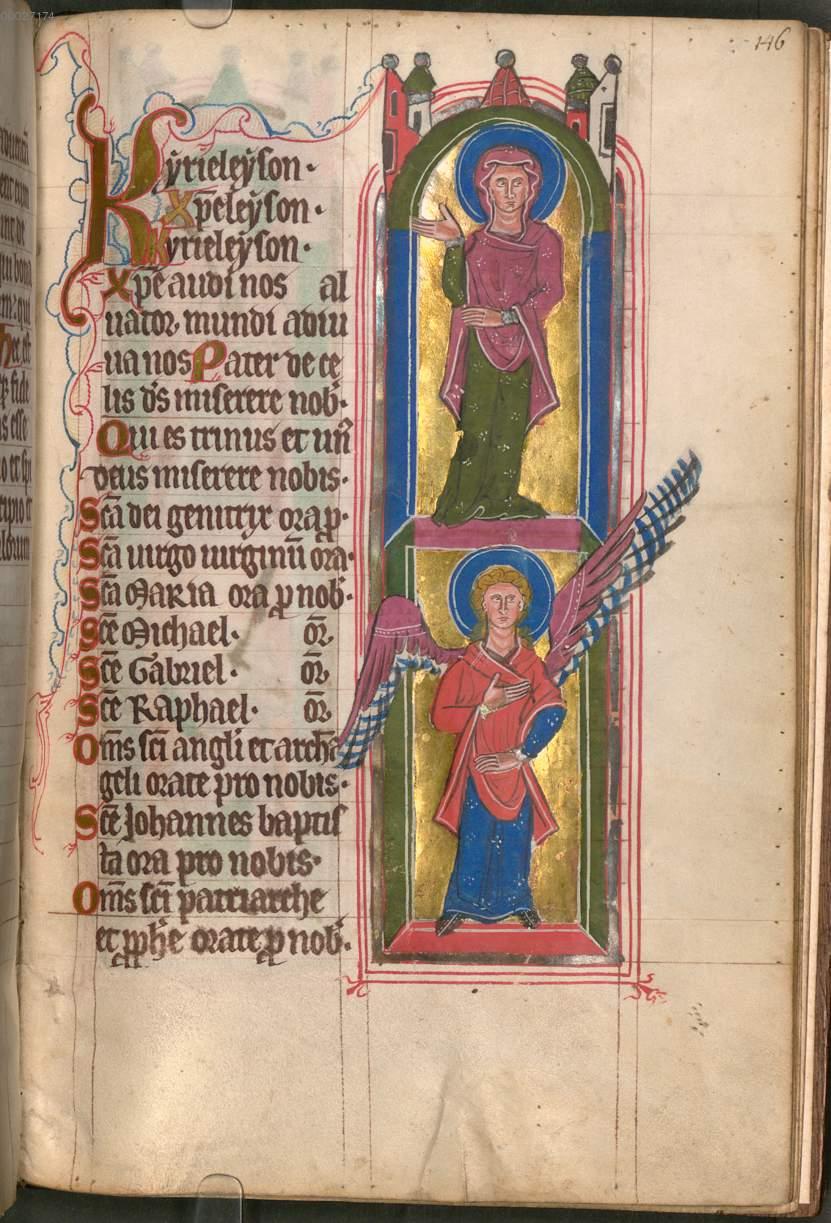 00027174
146
Kyrieleyson·
Xpeleyson·
kyrieleyson·
Xpē audi nos al
uator, mundi adiu
ua nos Pater de ce
lis ds miserere nob·
Qui es trinus et un
deus miserere nobis·
Scā dei genitrix ora p·
Scā uirgo uirginū ora·
Scā Maria ora p nob·
Scē Michael· or
Scē Gabriel· or
Scē Raphael· or
Oms sci angli et archā
geli orate pro nobis·
Scē Johannes baptis
ta ora pro nobis·
Oms sci patriarche
et pphe orate p nob·